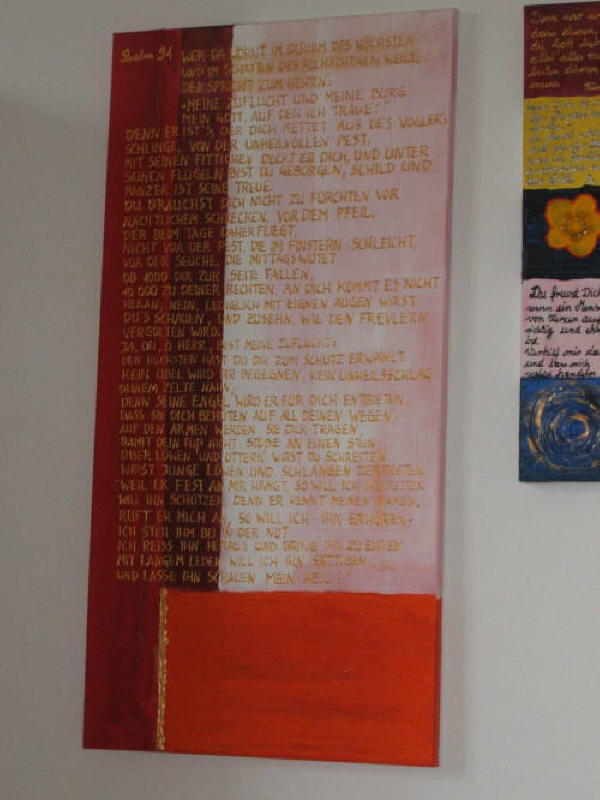 Psalm 91 WER DA WOHNT IM SCHIRM DES HÖCHSTEN
UND IM SCHATTEN DES ALLMÄCHTIGEN WEILT
DER SPRICHT ZUM HERRN:
"MEINE ZUFLUCHT UND MEINE BURG
MEIN GOTT, AUF DEN ICH TRAUE!"
DENN ER IST'S, DER DICH RETTET AUS DES VOGLERS
SCHLINGE, VON DER UNHEILVOLLEN PEST.
MIT SEINEN FITTICHEN DECKT ER DICH, UND UNTER
SEINEN FLÜGELN BIST DU GEBORGEN, SCHILD UND
PANZER IST SEINE TREUE.
DU BRAUCHST DICH NICHT ZU FÜRCHTEN VOR
NÄCHTLICHEM SCHRECKEN, VOR DEM PFEIL,
DER BEIM TAGE DAHERFLIEGT,
NICHT VOR DER PEST, DIE IM FINSTERN SCHLEICHT,
VOR DER SEUCHE, DIE MITTAGS WÜTET
OB 1000 DIR ZUR SEITE FALLEN,
10 000 ZU DEINER RECHTEN, AN DICH KOMMT ES NICHT
HERAN; NEIN, LEDIGLICH MIT EIGNEN AUGEN WIRST
DU'S SCHAUEN, UND ZUSEHN, WIE DEN FREVLERN
VERGOLTEN WIRD.
JA, DU, O HERR, IST MEINE ZUFLUCHT:
DEN HÖCHSTEN HAST DU DIR ZUM SCHUTZ ERWÄHLT
KEIN ÜBEL WIRD DIR BEGEGNEN, KEIN UNHEILSSCHLAG
DEINEM ZELTE NAHN,
DENN SEINE ENGEL WIRD ER FÜR DICH ENTBIETEN,
DASS SIE DICH BEHÜTEN AUF ALL DEINEN WEGEN;
AUF DEN ARMEN WERDEN SIE DICH TRAGEN,
DAMIT DEIN FUß NICHT STOßE AN EINEN STEIN
ÜBER LÖWEN UND OTTERN WIRST DU SCHREITEN
WIRST JUNGE LÖWEN UND SCHLANGEN ZERTRETEN
"WEIL ER FEST AN MIR HÄNGT, SO WILL ICH IHN RETTEN
WILL IHN SCHÜTZEN, DENN ER KENNT MEINEN NAMEN,
RUFT ER MICH AN, SO WILL ICH IHN ERHÖREN;
ICH STEH IHM BEI IN DER NOT
ICH REISS IHN HERAUS UND BRING IHN ZU EHREN
MIT LANGEM LEBEN WILL ICH IHN SÄTTIGEN
UND LASSE IHN SCHAUEN MEIN HEIL!"
du Gott
Die freust Dich
wenn ein Mensch
von Herzen
und